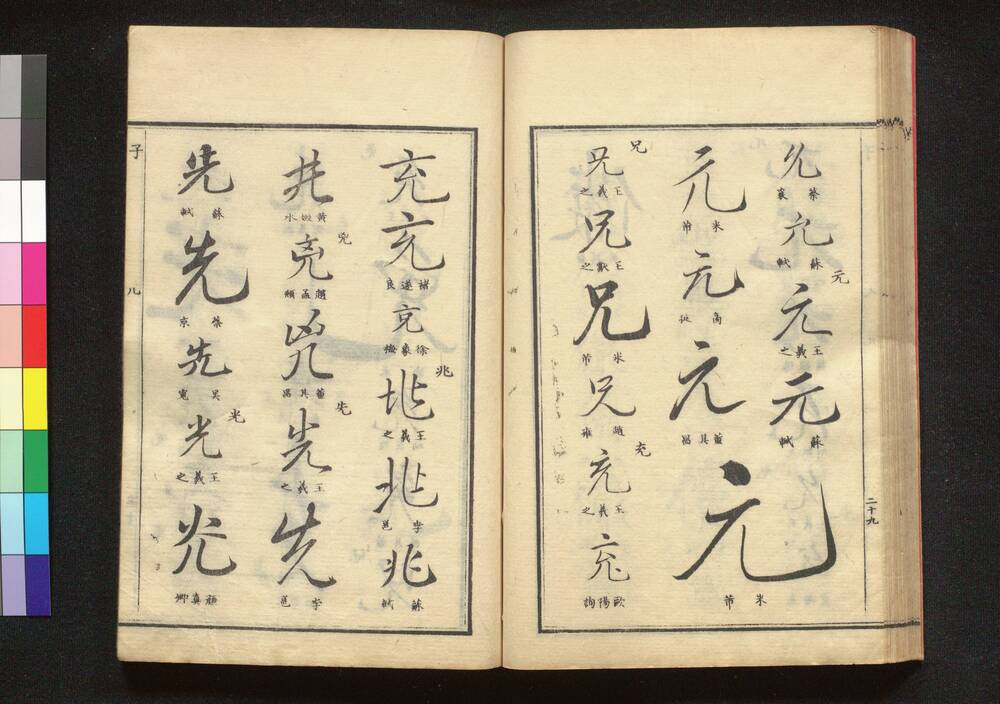 允
蔡襄
允
蘇軾
元
元
王羲之
元
蘇軾
二十九
元
米芾
元
元
董其昌
元
米芾
兄
兄
王羲之
兄
王獻之
兄
米芾
兄
趙雍
充
充
王羲之
充
歐陽詢
充
充
褚遂良
充
兆
兆
王羲之
兆
李邕
兆
蘇軾
趙孟頫
董其昌
先
先
王羲之
先
李邕
先
蘇軾
先
蔡京
先
吴寬
光
光
王羲之
光
顏真卿
子
儿